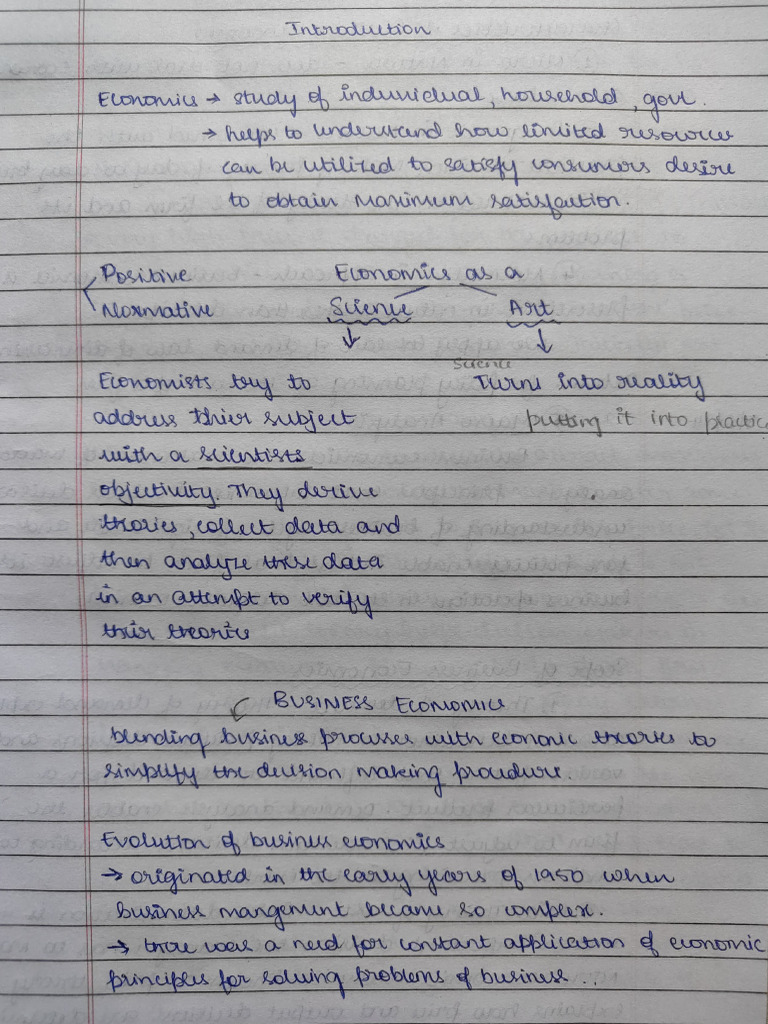 Introduction
Economics → study of indiviidual, household, govt.
→ helps to understand how limited resources
can be utilized to satisfy consumers desire
to obtain maximum satisfaction.
Positive
Normative
Economics as a
Science Art
Economists try to
address thier subject
with a scientists
objectivity. They derive
theories, collect data and
then analyze these data
in an attempt to verify
thier theories
science
Turns into reality
putting it into practice
BUSINESS ECONOMICS
blending business processes with economic theories to
simplify the decision making procedure.
Evolution of business economics
→ originated in the early years of 1950 when
business mangement became so complex.
→ there was a need for constant application of economic
principles for solving problems of business...